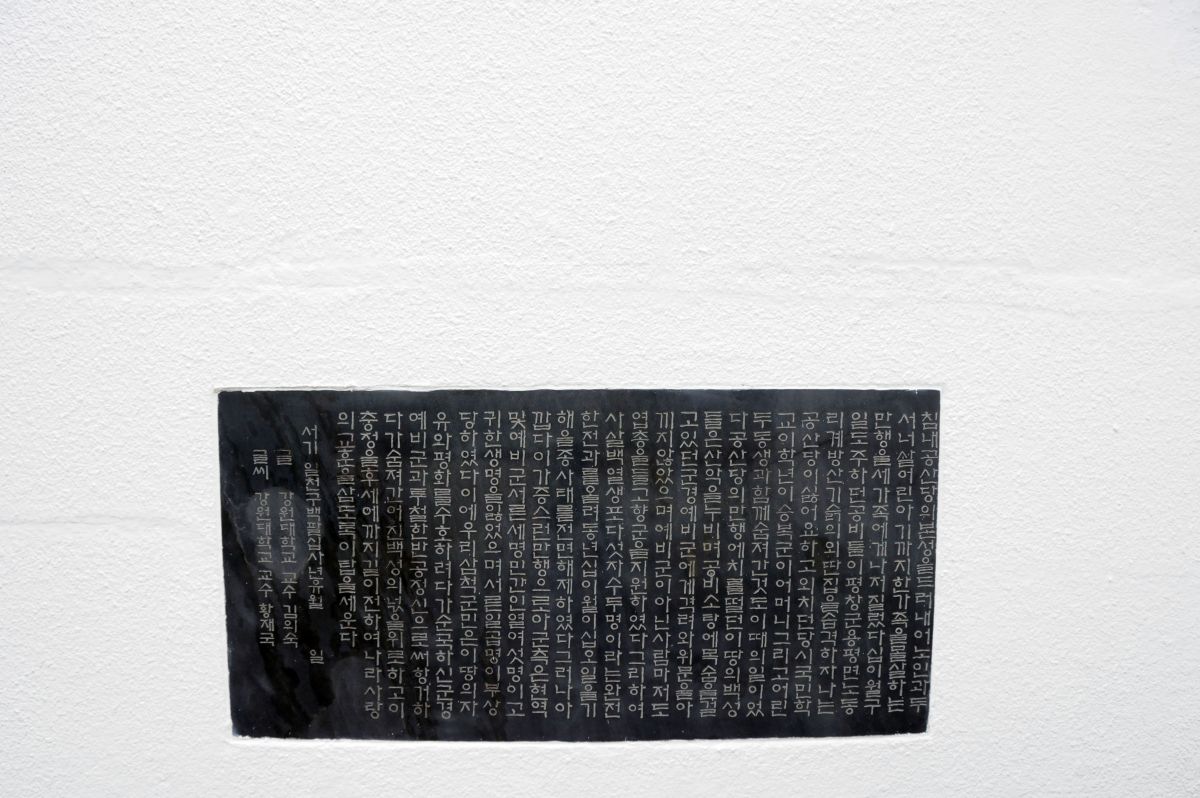 침내공산당의본성을드러내어노인과두
서너살어린아기까지한가족을몰살하는
만행을세가족에게나저질렀다십이월구
일도주하던공비들이평창군용평면노동
리계방산기슭의외딴집을습격하자나는
공산당이싫어요하고외치던당시국민학
교이학년이승복군이어머니그리고어린
두동생과함께숨져간것도이때의일이었
다공산당의만행에치를떨던이땅의백성
들은산악을누비며공비소탕에목숨을걸
고있던군경예비군에게격려와위문을아
끼지않았으며예비군이아닌사람마저도
엽총을들고향군을지원하였다그리하여
사살백열생포다섯자수두명이라는완전
한전과를올려동년십이월이십오일을기
해을종사태를전면해제하였다그러나아
깝다이가증스런만행으로아군측은현역
및예비군서른세명민간인열여섯명이고
귀한생명을잃었으며서른일곱명이부상
당하였다이에우리삼척군민은이땅의자
유와평화를수호하려다가순국하신군경
예비군과투철한반공정신으로써항거하
다가숨져간어진백성의넋을위로하고이
충정을후세에까지길이전하여나라사랑
의교훈을삼도록이탑을세운다
서기 일천구백팔십사년유월 일
글 강원대학교 교수 김의숙
글씨 강원대학교 교수 황재국